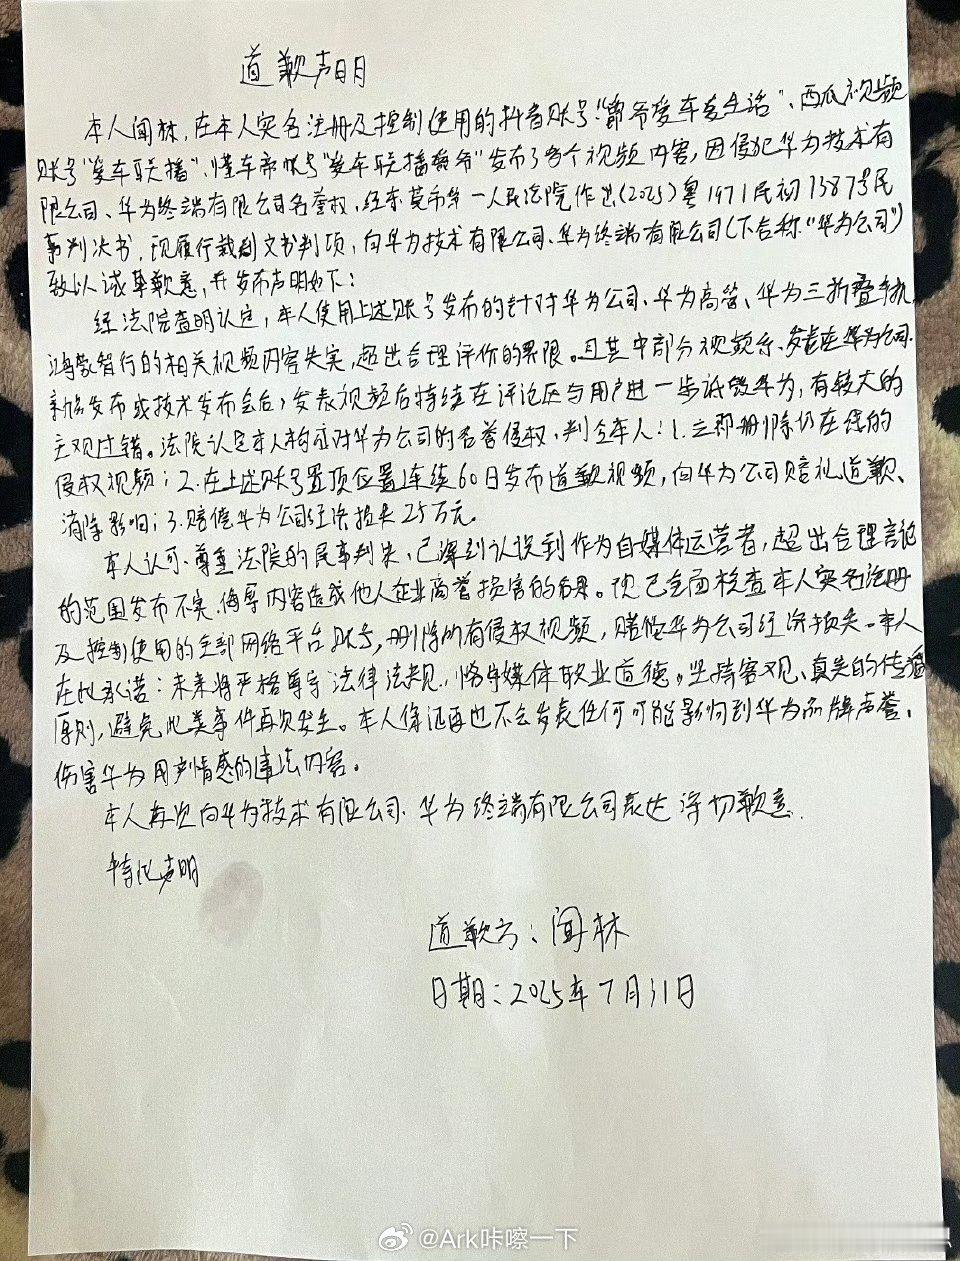 道歉声明
本人闻林，在本人实名注册及控制使用的抖音账号："爵爷爱车爱生活"、西瓜视频
账号"爱车联播"、懂车帝帐号"爱车联播爵爷"发布了多个视频内容，因侵犯华为技术有
限公司、华为终端有限公司名誉权，经东莞市第一人民法院作出(2025)粤1971民初7387号民
事判决书，现履行裁判文书判项，向华为技术有限公司、华为终端有限公司(下合称"华为公司")
致以诚挚歉意，并发布声明如下：
经法院查明认定，本人使用上述账号发布的针对华为公司、华为高管、华为三折叠手机、
鸿蒙智行的相关视频内容失实，超出合理评价的界限。且其中部分视频系发表在华为公司
新品发布或技术发布会后，发表视频后持续在评论区与用户进一步诋毁华为，有较大的
主观过错。法院认定本人构成对华为公司的名誉侵权，判令本人：1.立即删除仍在线的
侵权视频；2.在上述账号置顶位置连续60日发布道歉视频，向华为公司赔礼道歉、
消除影响；3.赔偿华为公司经济损失25万元。
本人认可、尊重法院的民事判决，已深刻认识到作为自媒体运营者，超出合理言论
的范围发布不实、侮辱内容造成他人企业商誉损害的后果。现已全面检查本人实名注册
及控制使用的全部网络平台账号，删除所有侵权视频，赔偿华为公司经济损失。本人
在此承诺：未来将严格遵守法律法规，恪守媒体职业道德。坚持客观、真实的传播
原则，避免此类事件再次发生。本人保证再也不会发表任何可能影响到华为品牌声誉、
伤害华为用户情感的违法内容。
本人再次向华为技术有限公司、华为终端有限公司表达深切歉意.
特此声明
道歉方：闻林
日期：2025年7月31日
@Ark咔嚓一下